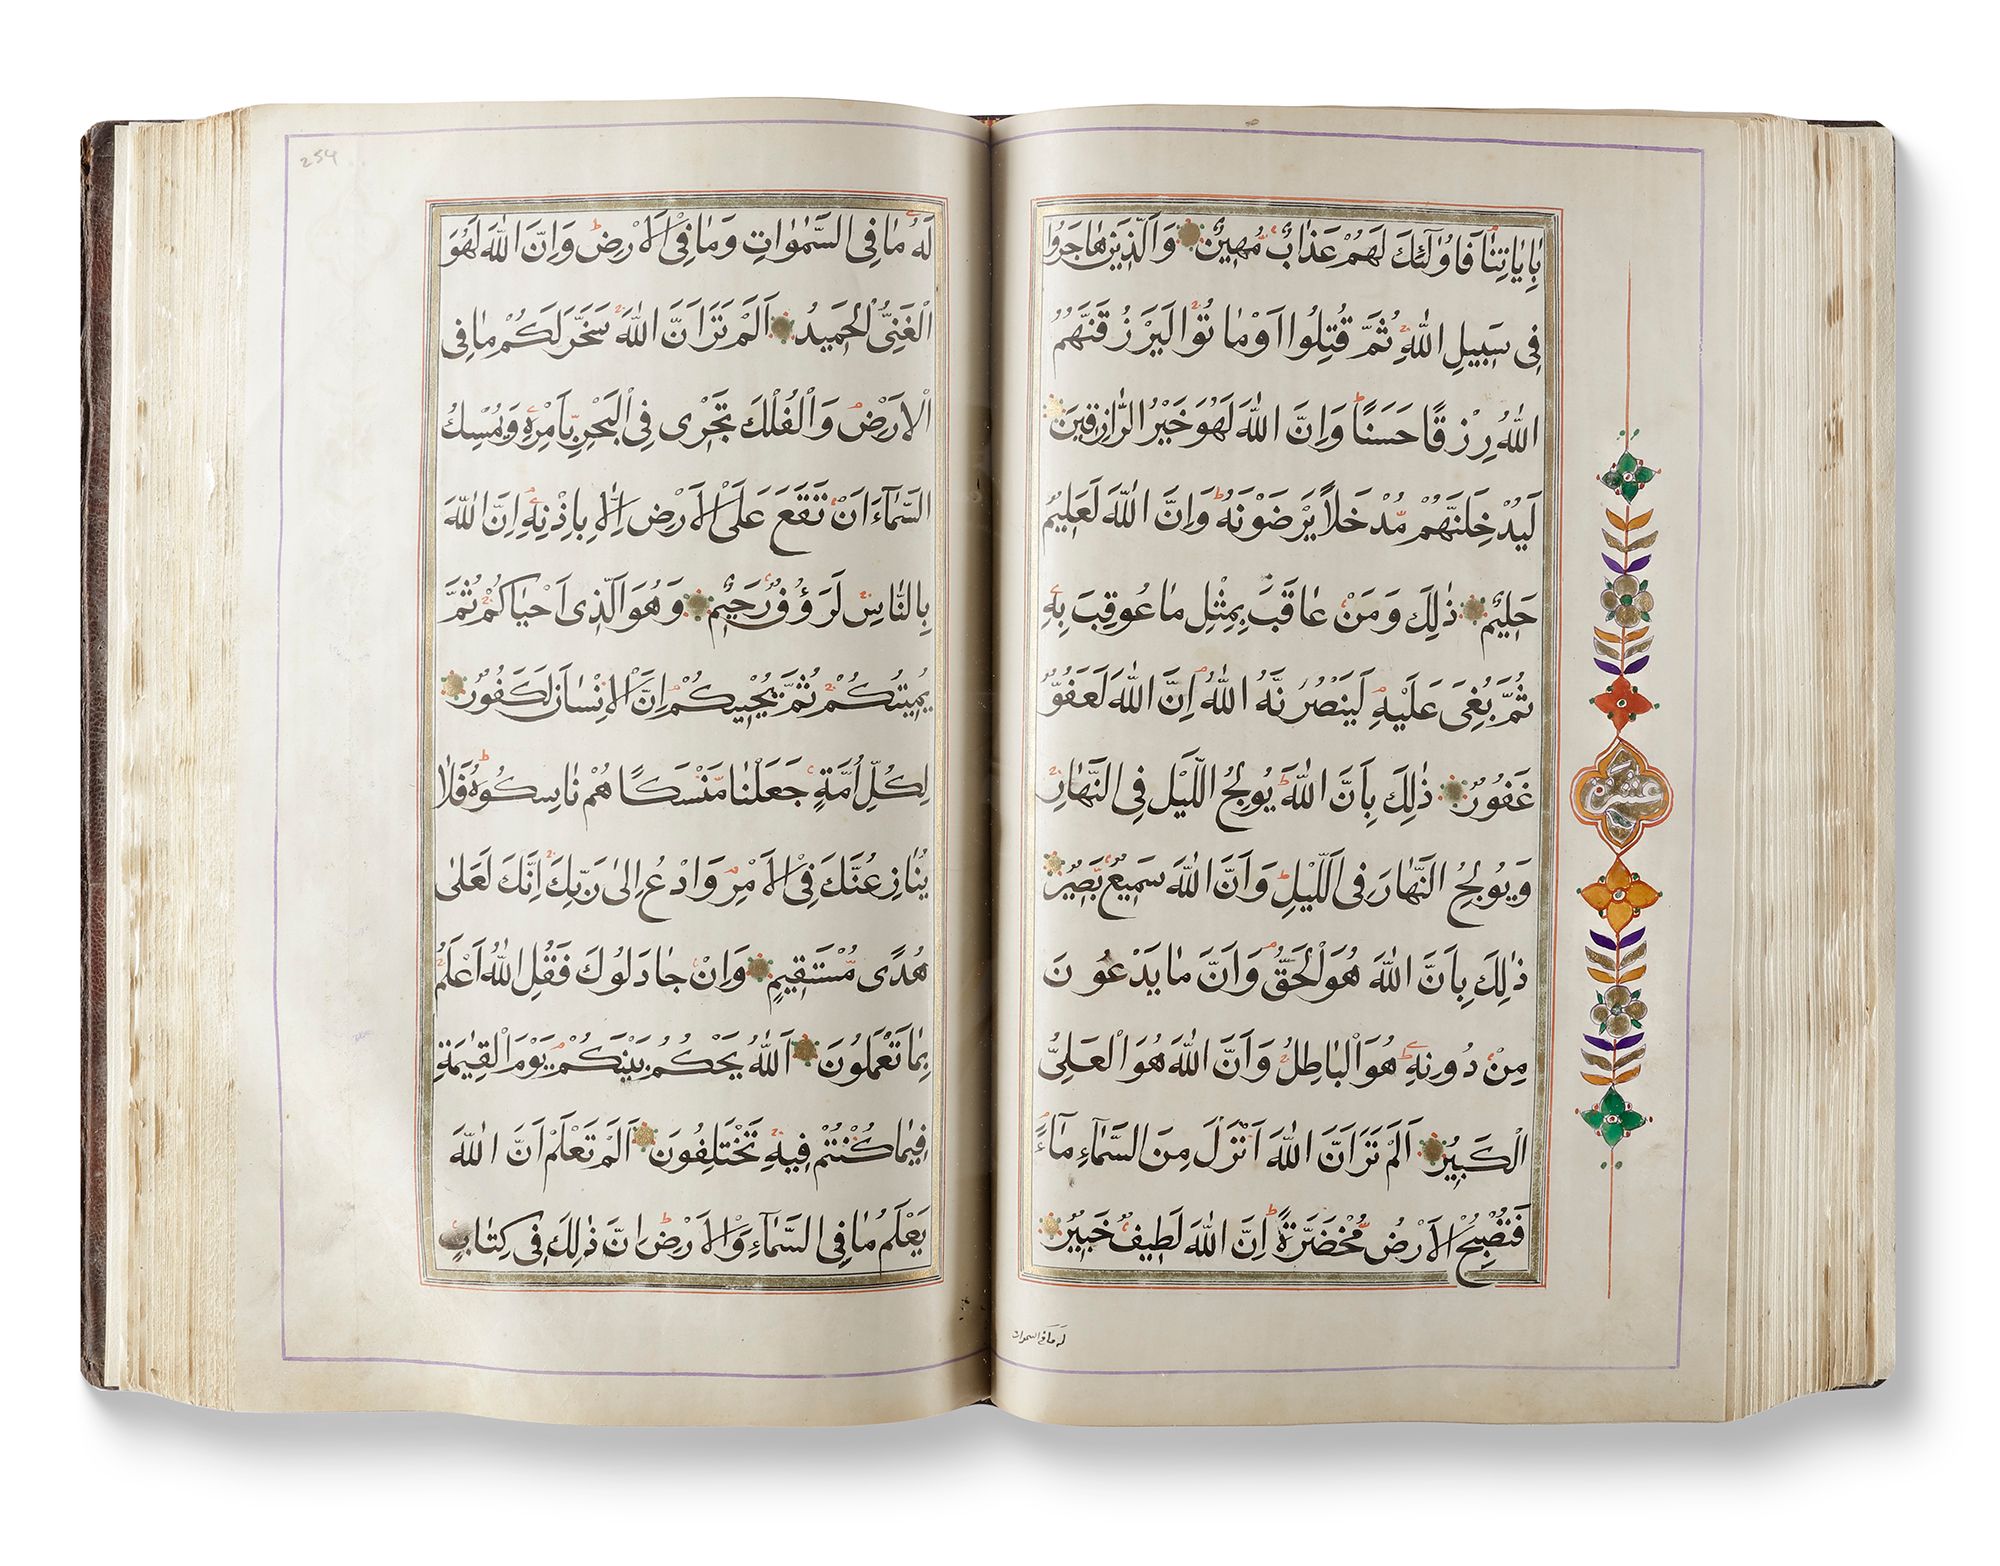 بِاٰيَاتِنَا فَاُولٰٓئِكَ لَهُمْ عَذَابٌ مُهِينٌ وَالَّذِينَ هَاجَرُوا
فِى سَبِيلِ اللّٰهِ ثُمَّ قُتِلُوا اَوْ مَا تُوا لَيَرْزُقَنَّهُمُ
اللّٰهُ رِزْقًا حَسَنًا وَاِنَّ اللّٰهَ لَهُوَ خَيْرُ الرَّازِقِينَ
لَيُدْخِلَنَّهُمْ مُدْخَلًا يَرْضَوْنَهُ وَاِنَّ اللّٰهَ لَعَلِيمٌ
حَلِيمٌ ذٰلِكَ وَمَنْ عَاقَبَ بِمِثْلِ مَا عُوقِبَ بِهِ
ثُمَّ بُغِىَ عَلَيْهِ لَيَنْصُرَنَّهُ اللّٰهُ اِنَّ اللّٰهَ لَعَفُوٌّ
غَفُورٌ ذٰلِكَ بِاَنَّ اللّٰهَ يُولِجُ اللَّيْلَ فِى النَّهَارِ
وَيُولِجُ النَّهَارَ فِى الَّليْلِ وَاَنَّ اللّٰهَ سَمِيعٌ بَصِيرٌ
ذٰلِكَ بِاَنَّ اللّٰهَ هُوَ الْحَقُّ وَاَنَّ مَا يَدْعُونَ
مِنْ دُونِهِ هُوَ الْبَاطِلُ وَاَنَّ اللّٰهَ هُوَ الْعَلِىُّ
الْكَبِيرُ اَلَمْ تَرَ اَنَّ اللّٰهَ اَنْزَلَ مِنَ السَّمَآءِ مَآءً
فَتُصْبِحُ الْاَرْضُ مُخْضَرَّةً اِنَّ اللّٰهَ لَطِيفٌ خَبِيرٌ
له ما فى السموات
عشر
254
لَهُ مَا فِى السَّمٰوَاتِ وَمَا فِى الْاَرْضِ وَاِنَّ اللّٰهَ لَهُوَ
الْغَنِىُّ الْحَمِيدُ اَلَمْ تَرَ اَنَّ اللّٰهَ سَخَّرَ لَكُمْ مَا فِى
الْاَرْضِ وَالْفُلْكَ تَجْرِى فِى الْبَحْرِ بِاَمْرِهِ وَيُمْسِكُ
السَّمَآءَ اَنْ تَقَعَ عَلَى الْاَرْضِ اِلَّا بِاِذْنِهِ اِنَّ اللّٰهَ
بِالنَّاسِ لَرَؤُفٌ رَحِيمٌ وَهُوَ الَّذِى اَحْيَاكُمْ ثُمَّ
يُمِيتُكُمْ ثُمَّ يُحْيِيكُمْ اِنَّ الْاِنْسَانَ لَكَفُورٌ
لِكُلِّ اُمَّةٍ جَعَلْنَا مَنْسَكًا هُمْ نَاسِكُوهُ فَلَا
يُنَازِعُنَّكَ فِى الْاَمْرِ وَادْعُ اِلٰى رَبِّكَ اِنَّكَ لَعَلٰى
هُدًى مُسْتَقِيمٍ وَاِنْ جَادَلُوكَ فَقُلِ اللّٰهُ اَعْلَمُ
بِمَا تَعْمَلُونَ اَللّٰهُ يَحْكُمُ بَيْنَكُمْ يَوْمَ الْقِيٰمَةِ
فِيمَا كُنْتُمْ فِيهِ تَخْتَلِفُونَ اَلَمْ تَعْلَمْ اَنَّ اللّٰهَ
يَعْلَمُ مَا فِى السَّمَآءِ وَالْاَرْضِ اِنَّ ذٰلِكَ فِى كِتَابٍ